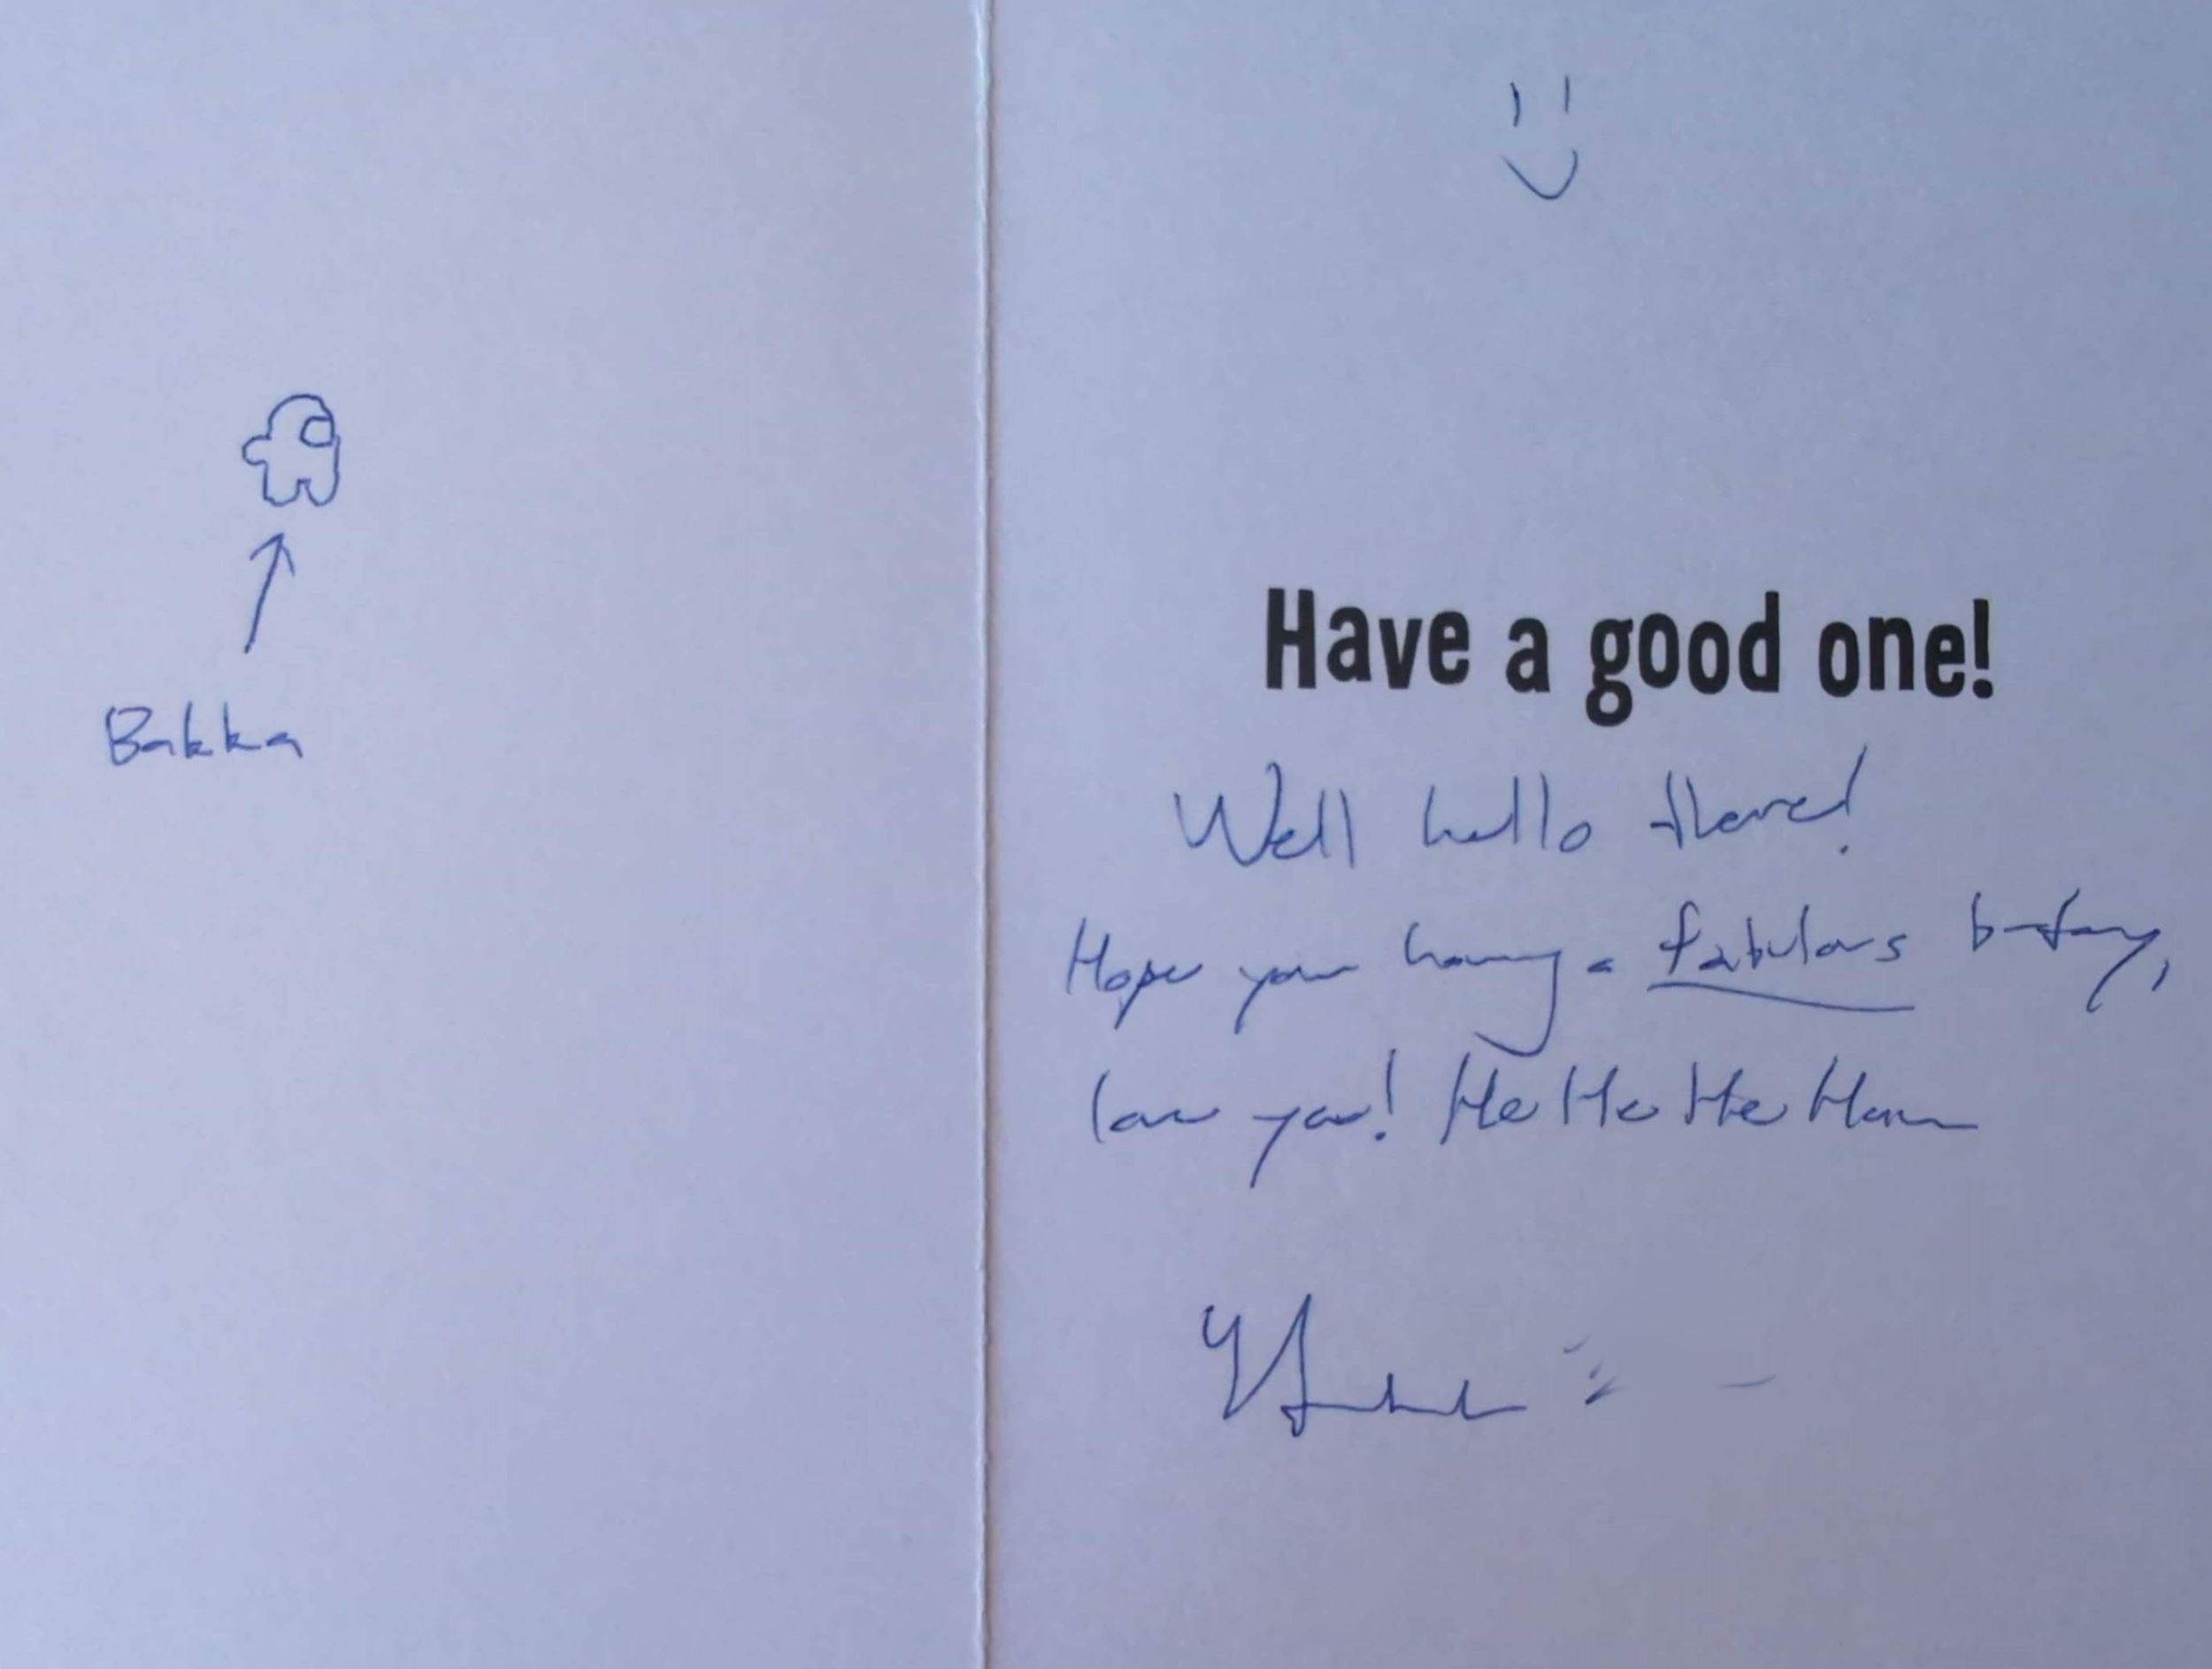 Bakka
Have a good one!
Well hello there!
Hope your having a fabulous b-day,
love you! He He He